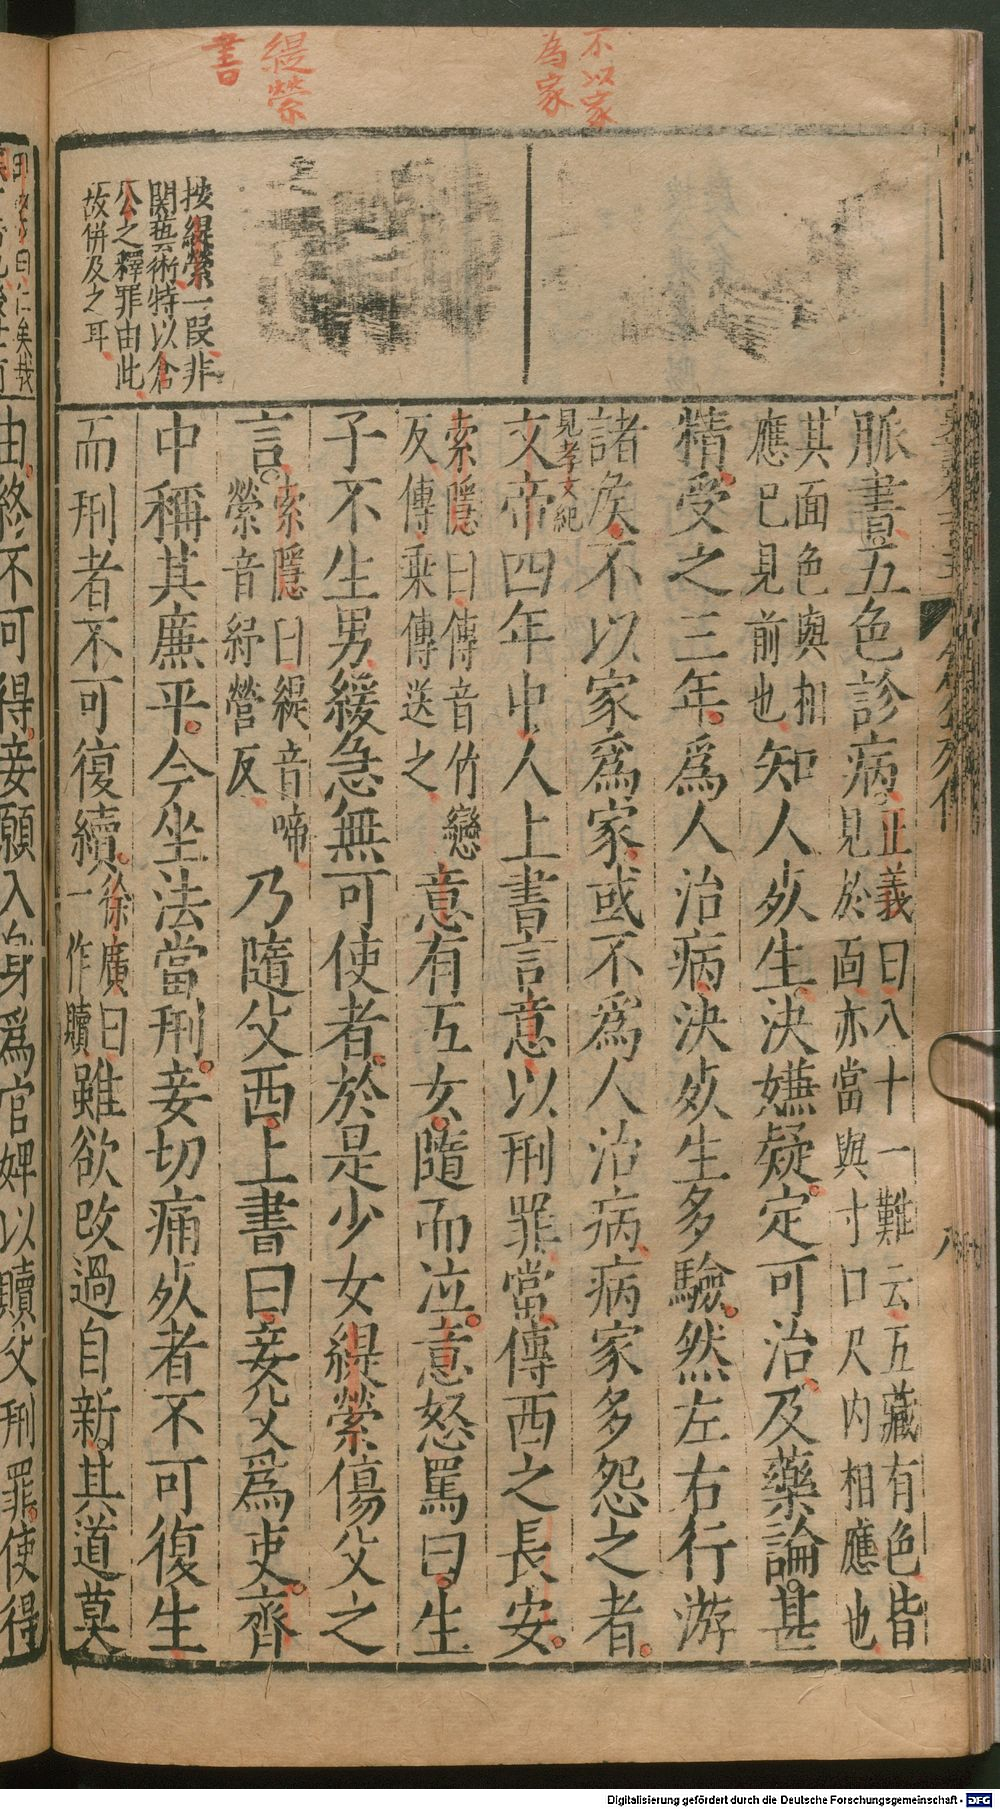 不以家
為家
緹縈
書
按緹縈一段非
関藝術特以倉
公之釋罪由此
故併及之耳
脈書五色診病正義曰八十一難云五藏有色皆
見於面亦當與寸口尺内相應也
其面色與相
應已見前也知人死生決嫌疑定可治及藥論甚
精受之三年為人治病決死生多驗然左右行游
諸侯不以家為家或不為人治病病家多怨之者
見孝文紀
文帝四年中人上書言意以刑罪當傳西之長安
索隱曰傳音竹戀
反傳乘傳送之意有五女隨而泣意怒罵曰生
子不生男緩急無可使者於是少女緹縈傷父之
言索隱曰緹音啼
縈音紆營反乃隨父西上書曰妾父為吏齊
中稱其廉平今坐法當刑妾切痛死者不可復生
而刑者不可復續徐廣曰
一作贖雖欲改過自新其道莫
由終不可得妾願入身為官婢以贖父刑罪使得
Digitalisierung gefördert durch die Deutsche Forschungsgemeinschaft - DFG